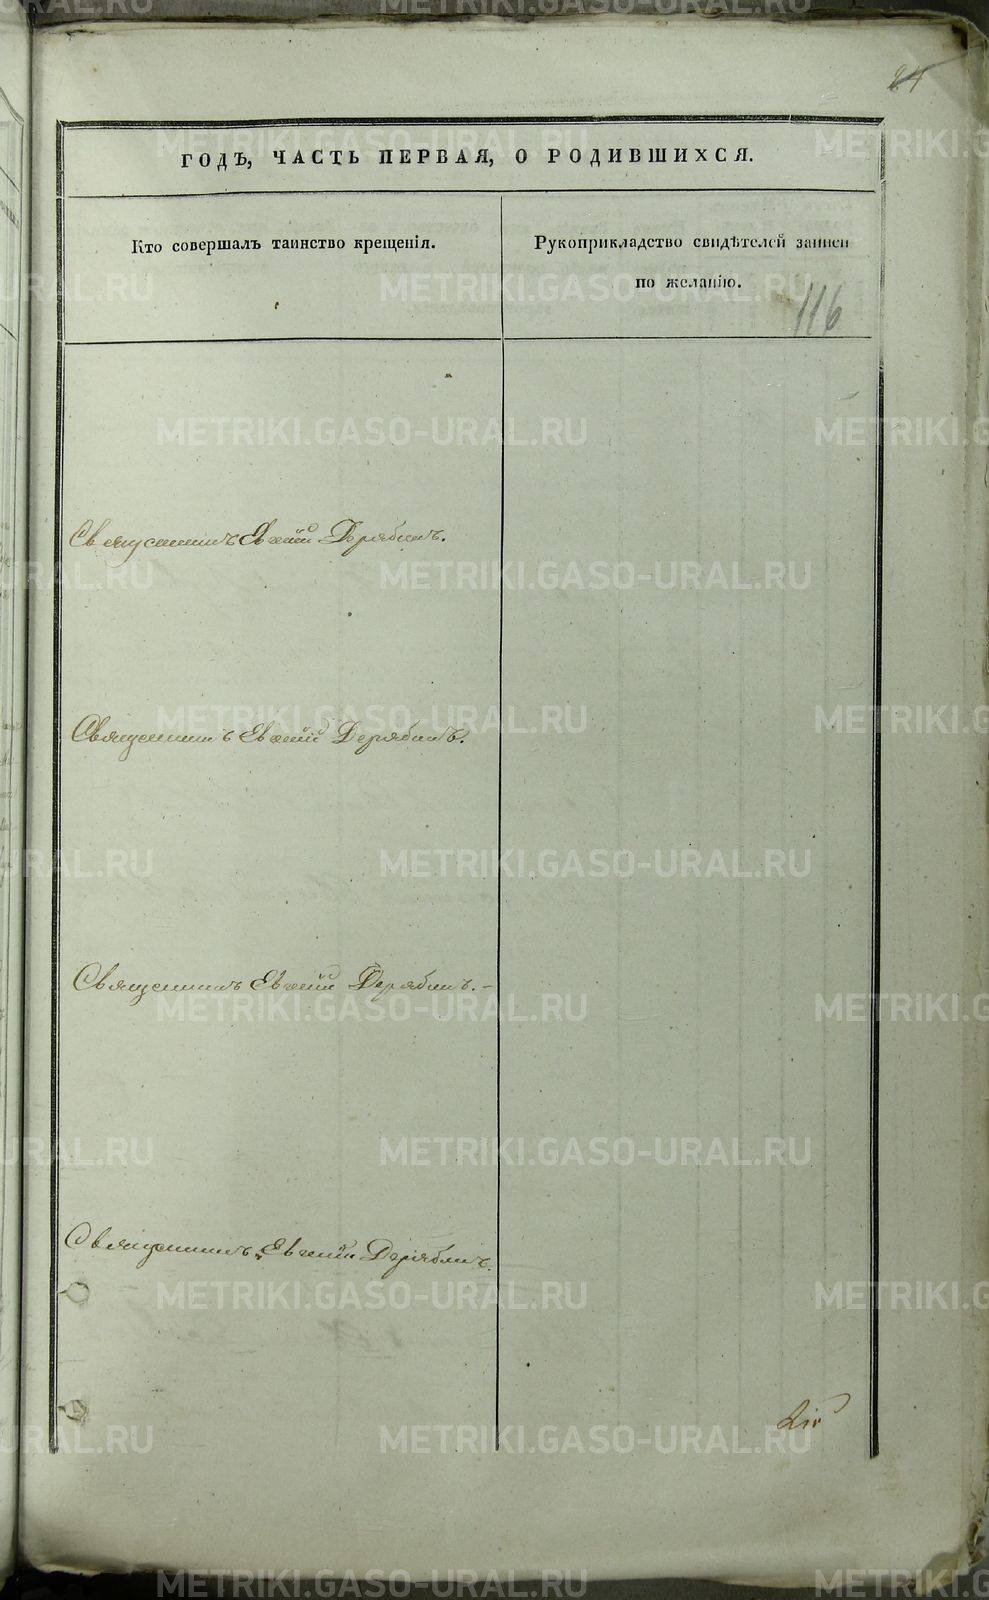 24
ГОДЪ, ЧАСТЬ ПЕРВАЯ, О РОДИВШИХСЯ.
Кто совершалъ таинство крещенія.
Рукоприкладство свидѣтелей записи
по желанію.
116
Священникъ Евгеній Дерябинъ.
Священникъ Евгеній Дерябинъ.
Священникъ Евгеній Дерябинъ.-
Священникъ Евгеній Дерябинъ.
METRIKI.GASO-URAL.RU